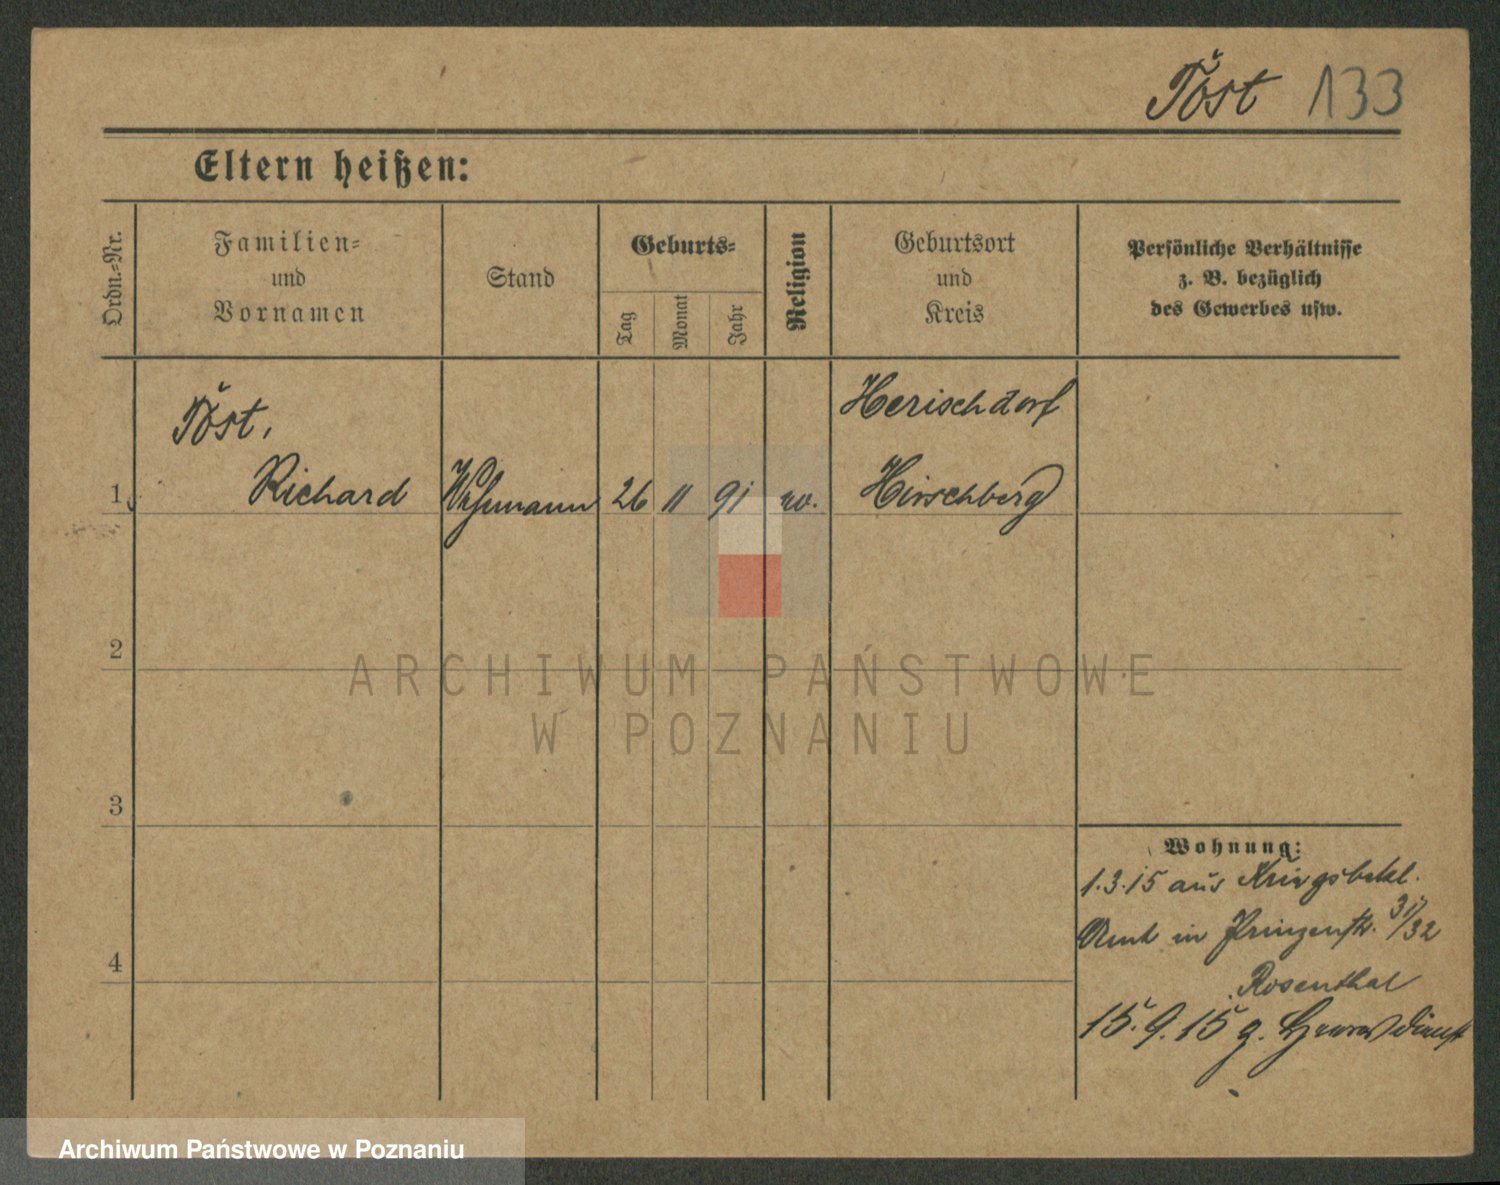 Töst 133
Eltern heißen:
Ordn.-Nr.
Familien-
und
Vornamen
Stand
Geburts-
Tag
Monat
Jahr
Religion
Geburtsort
und
Kreis
Persönliche Verhältnisse
z. B. bezüglich
des Gewerbes usw.
Töst,
Herischdorf
1. Richard Wehrmann 26 11 91 ev. Hirschberg
2
3
4
Wohnung:
1.3.15 aus Kriegsbekl.
Amt in Prinzenstr. 31/32
Rosenthal
15.9.15 z. Heeresdienst
ARCHIWUM PAŃSTWOWE
W POZNANIU
Archiwum Państwowe w Poznaniu